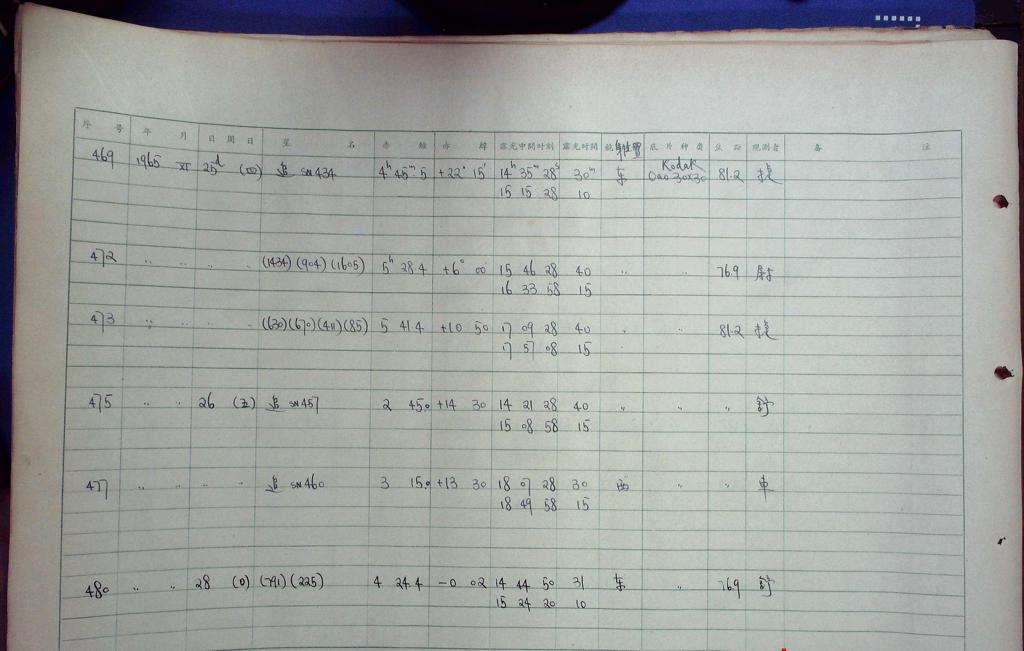 序号 年 月 日 周日 星 名 赤 經 赤 緯 露光中間时刻 露光时間 鏡 位置 底片种类 弦距 观测者 备 注
469 1965 XI 25d (四) 追 SN434 4h 45m 5 +22° 15' 14h 35m 28s 30m 东 Kodak 0a0 30x30 81.2
15 15 28 10
472 " " " " (1434) (904) (1605) 5h 28.4 +6° 00 15 46 28 40 " " 76.9
16 33 58 15
473 " " " " (630) (670) (411) (85) 5 41.4 +10 50 17 09 28 40 " " 81.2
17 57 08 15
475 " " 26 (五) 追 SN457 2 45.0 +14 30 14 21 28 40 " " "
15 08 58 15
477 " " " " 追 SN460 3 15.0 +13 30 18 07 28 30 西 " "
18 49 58 15
480 " " 28 (日) (791) (225) 4 24.4 -0 02 14 44 50 31 东 " 76.9
15 24 20 10